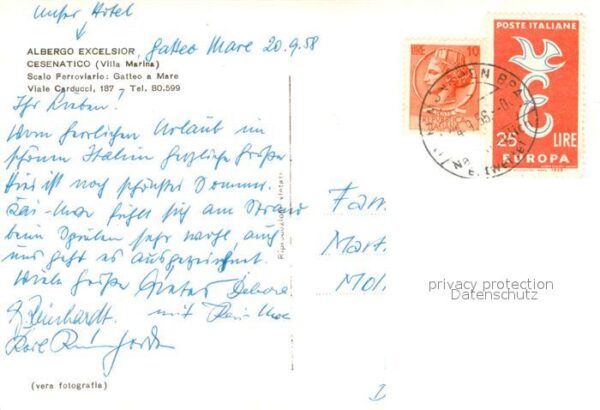 unser Hotel
ALBERGO EXCELSIOR, Gatteo Mare 20.9.58
CESENATICO (Villa Marina)
Scalo Ferroviario: Gatteo a Mare
Viale Carducci, 187 Tel. 80.599
Ihr Lieben!
Vom herrlichen Urlaub im
schönen Italien herzliche Grüße
Hier ist noch schönster Sommer.
Kai-Uwe fühlt sich am Strand
beim Spielen sehr wohl, auch
uns geht es ausgezeichnet.
Viele Grüße
Reinhardt. mit Kai-Uwe
Karl
(vera fotografia)
Riproduzione vietata
Fam.
Mart.
Mol.
I
LIRE 10
POSTE ITALIANE
25 LIRE
EUROPA
privacy protection
Datenschutz